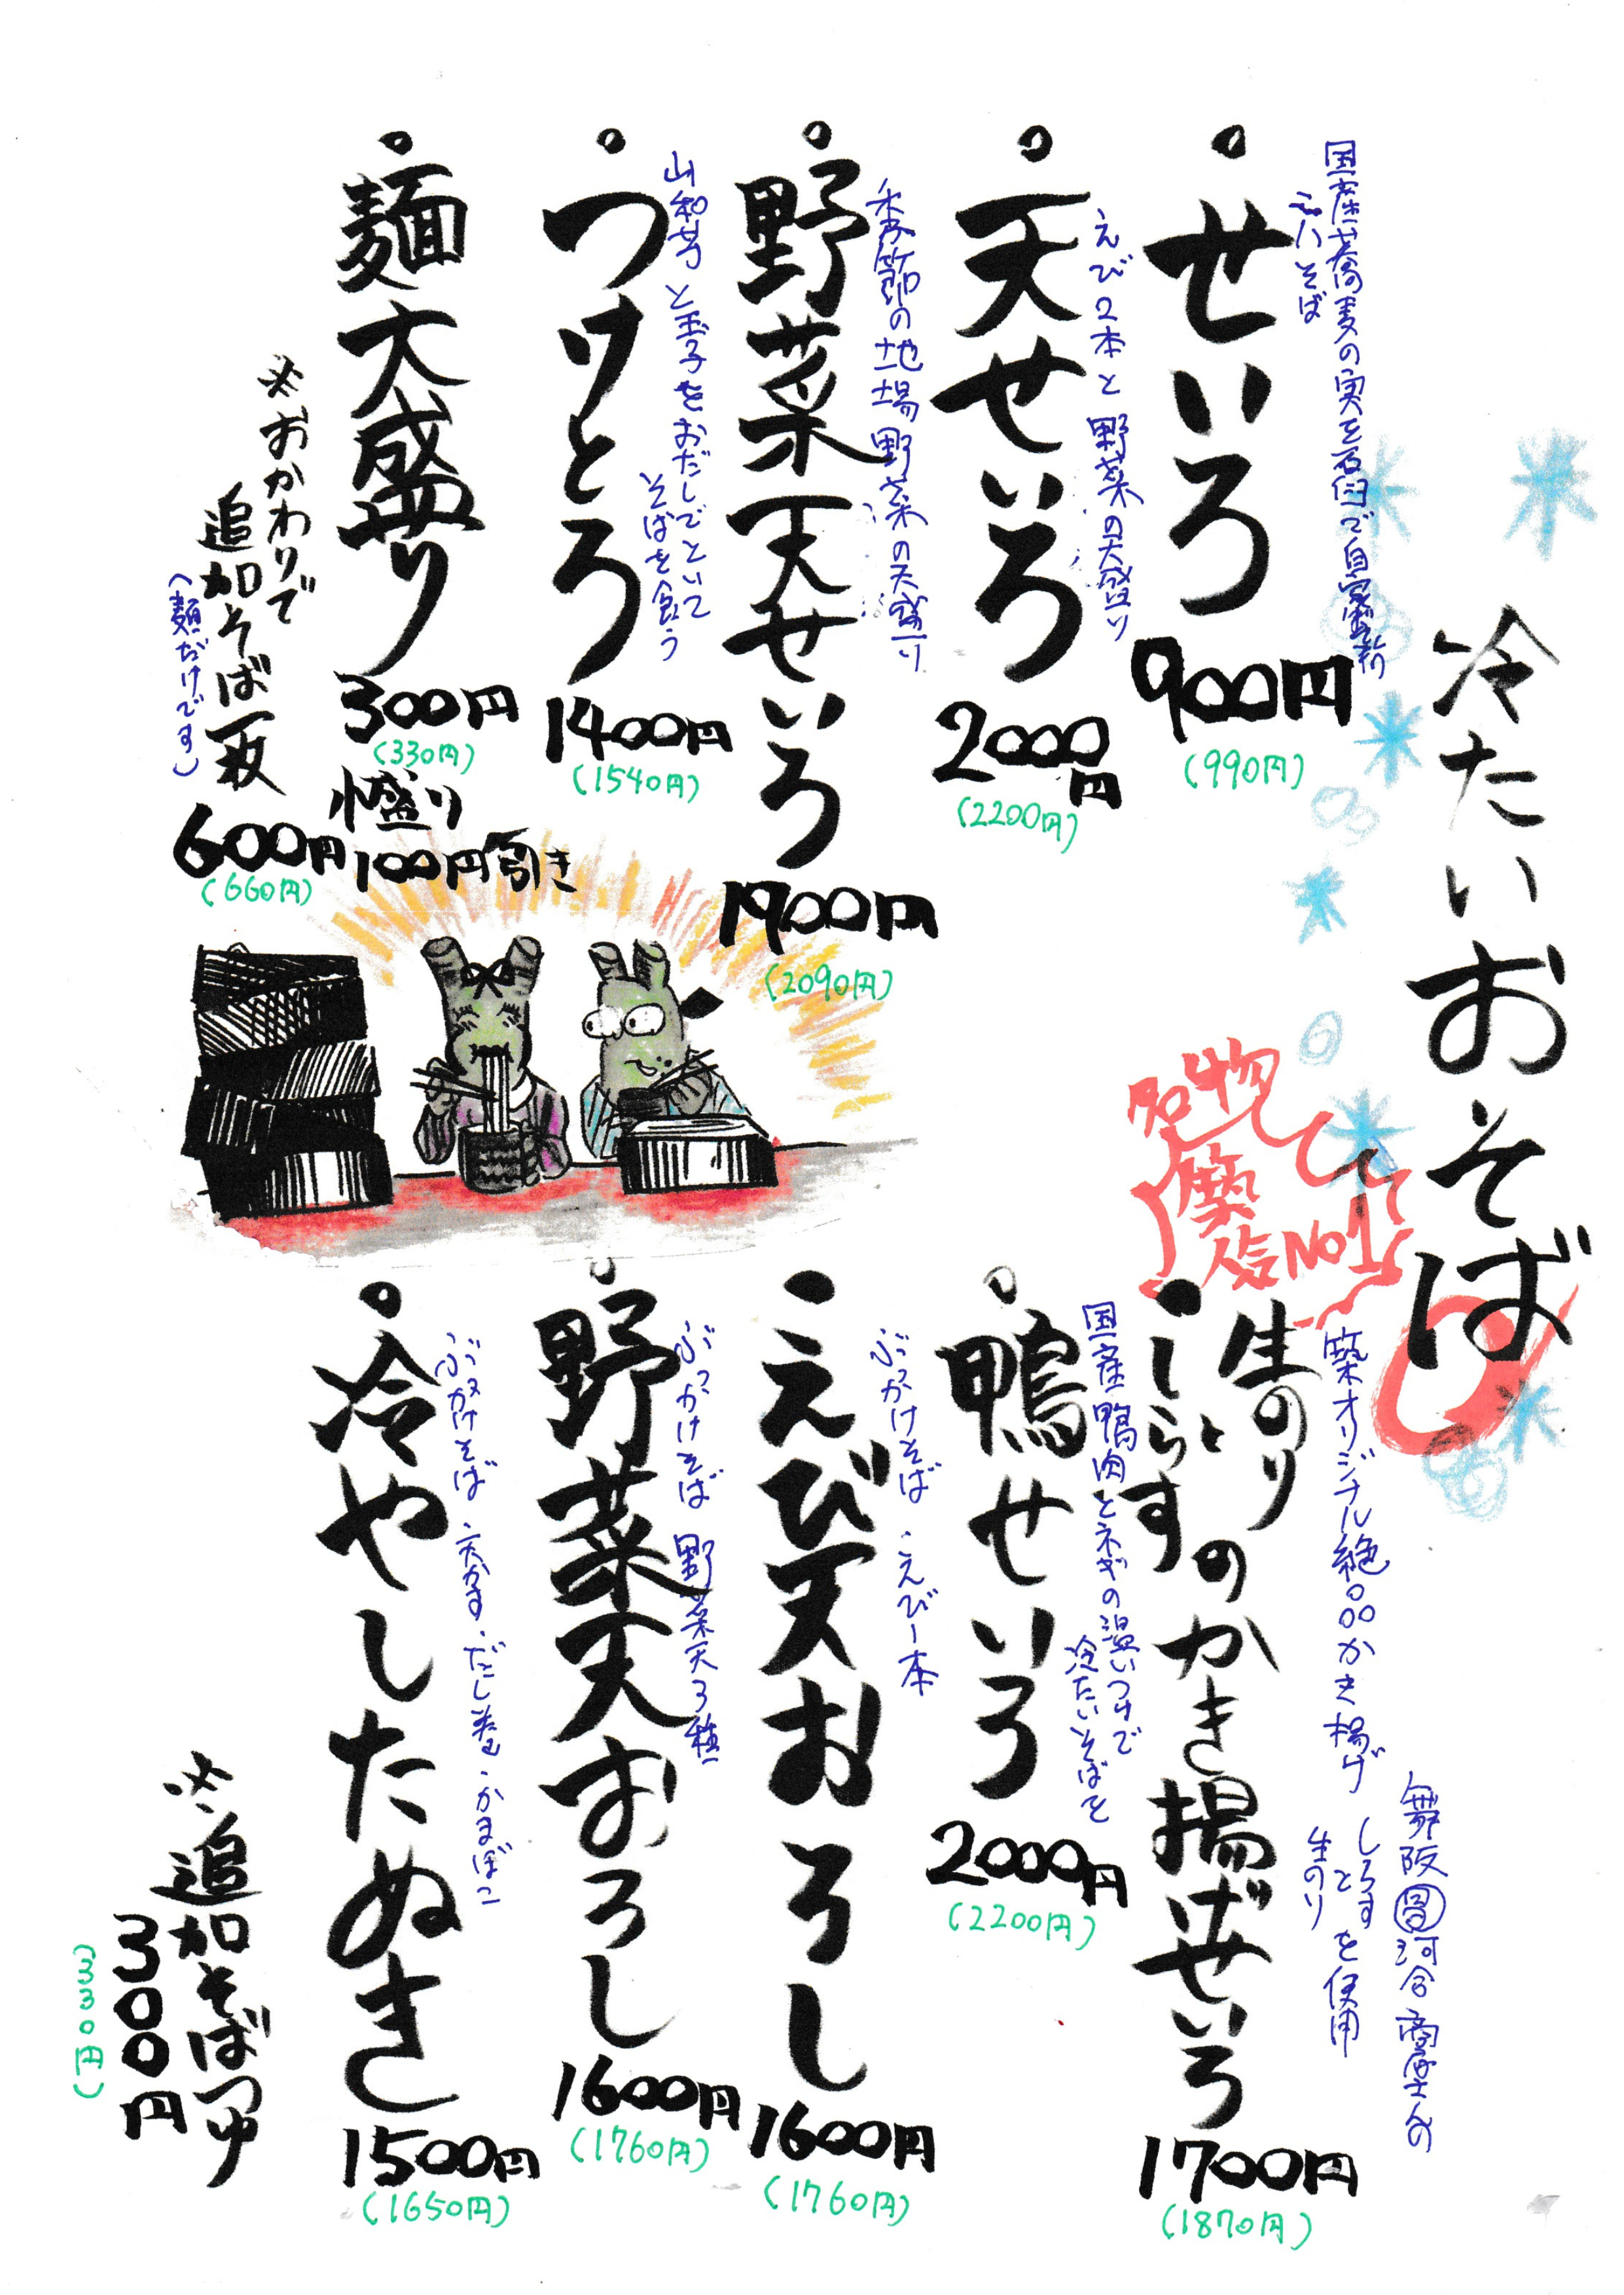 冷たいおそば
国産蕎麦の実を石臼で自家製粉
二八そば
せいろ
900円
(990円)
えび2本と野菜の天盛り
天せいろ
2000円
(2200円)
季節の地場野菜の天盛り
野菜天せいろ
1900円
(2090円)
山和芋と玉子をおだしでといて
そばを食う
つけとろ
1400円
(1540円)
麺大盛り
300円
(330円)
小盛り
100円引き
※おかわりで
追加そば一枚
(麺だけです)
600円
(660円)
名物
築
人気No1
舞阪 河合商店さんの
しらすと生のりを使用
築オリジナル絶品かき揚げ
生のりとしらすのかき揚げせいろ
1700円
(1870円)
国産鴨肉とネギの温いつけで
冷たいそばを
鴨せいろ
2000円
(2200円)
ぶっかけそば えび一本
えび天おろし
1600円
(1760円)
ぶっかけそば 野菜天3種
野菜天おろし
1600円
(1760円)
ぶっかけそば 天かす・だし巻・かまぼこ
冷やしたぬき
1500円
(1650円)
※追加そばつゆ
300円
(330円)